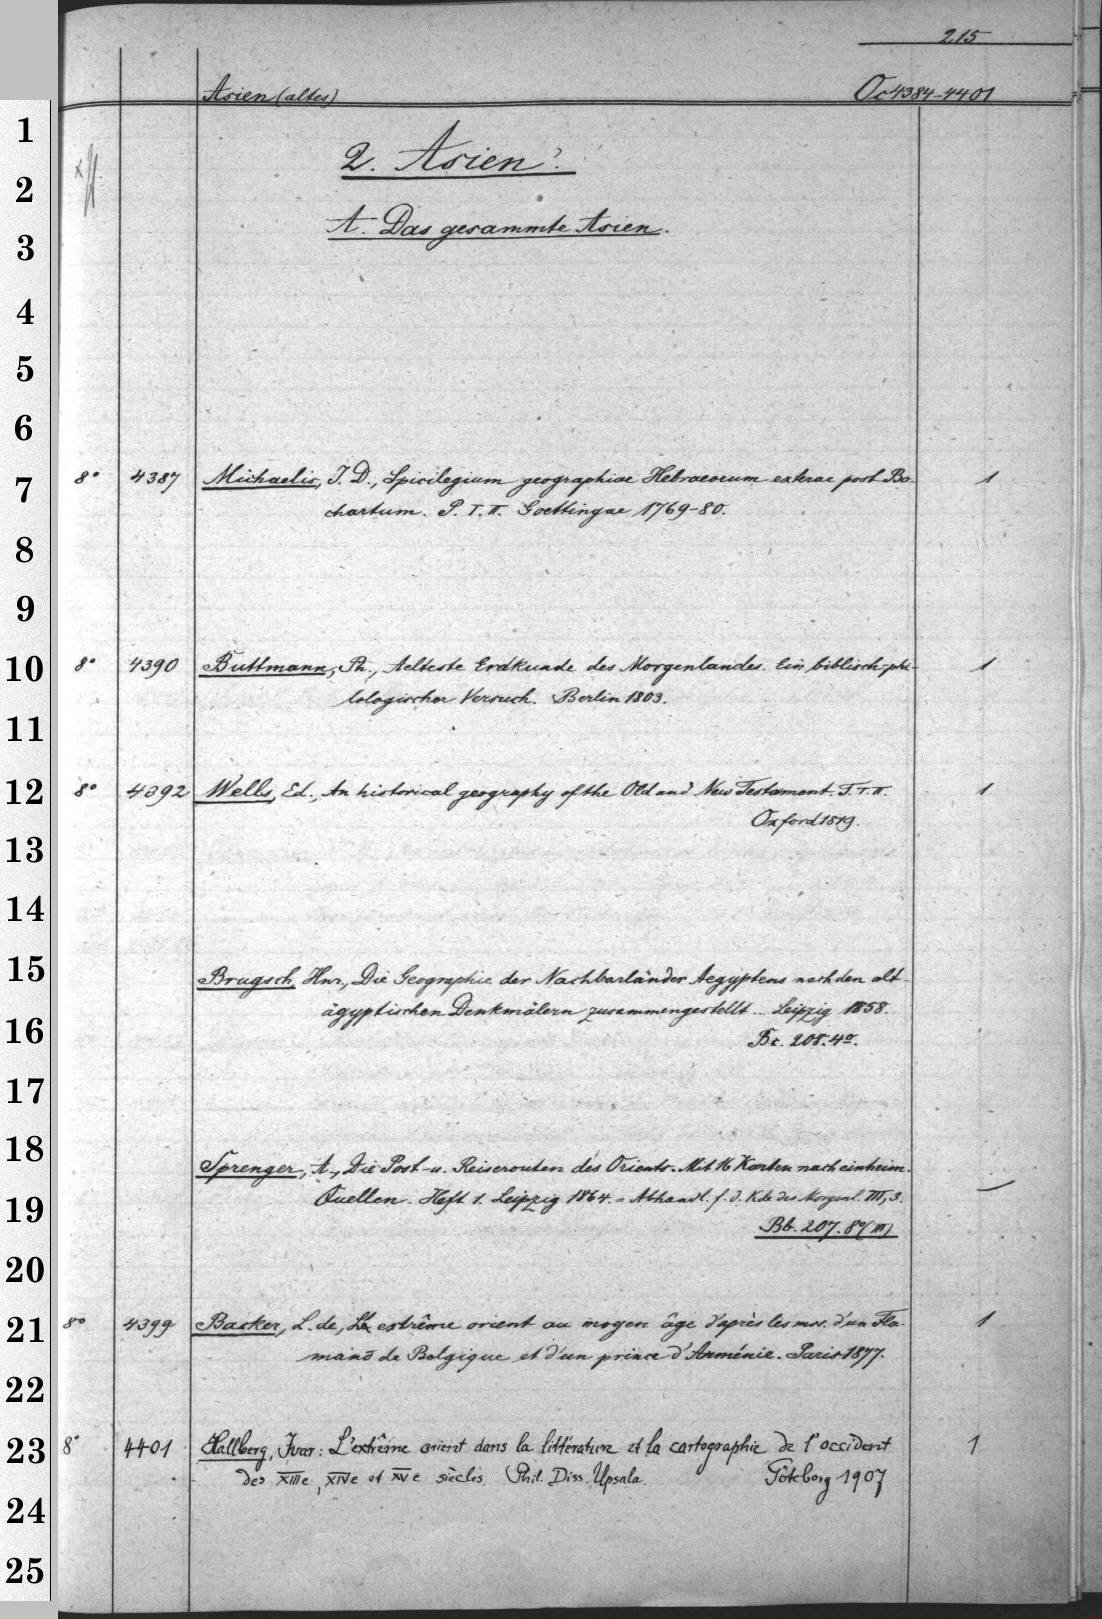 215
Asien (altes) Oc 4384-4401
2. Asien.
A. Das gesammte Asien.
8° 4387 Michaelis, J. D., Spicilegium geographiae Hebraeorum exterae post Bo-
chartum. P. I. II. Goettingae 1769-80. 1
8° 4390 Buttmann, Ph., Aelteste Erdkunde des Morgenlandes. Ein biblisch-phi-
lologischer Versuch. Berlin 1803. 1
8° 4392 Wells, Ed., An historical geography of the Old and New Testament. T. I. II.
Oxford 1819. 1
Brugsch, Hnr., Die Geographie der Nachbarländer Aegyptens nach den alt-
ägyptischen Denkmälern zusammengestellt... Leipzig 1858.
Bc. 208. 4°.
Sprenger, A., Die Post- u. Reiserouten des Orients. Mit 16 Karten nach einheim.
Quellen. Heft 1. Leipzig 1864. = Abhandl. f. d. Kde des Morgenl. III, 3. —
Bb. 207. 8° (III)
8° 4399 Backer, L. de, L'extrême orient au moyen âge d'après les mss. d'un Fla-
mand de Belgique et d'un prince d'Arménie. Paris 1877. 1
8° 4401 Hallberg, Ivar: L'extrême orient dans la littérature et la cartographie de l'occident
des XIIIe, XIVe et XVe siècles. Phil. Diss. Upsala. Göteborg 1907 1
1
2
3
4
5
6
7
8
9
10
11
12
13
14
15
16
17
18
19
20
21
22
23
24
25